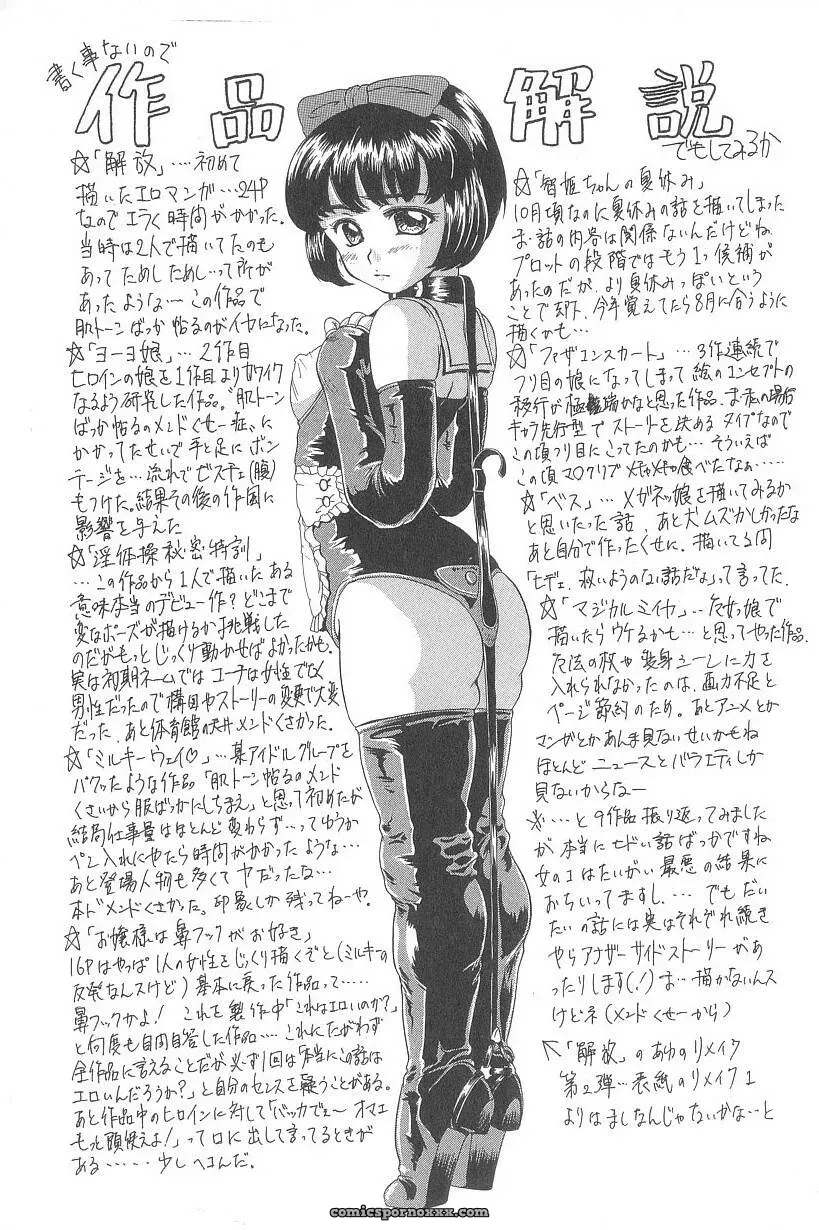 書く事ないので
作品解説
でもしてみるか
☆「解放」‥‥初めて
描いたエロマンガ…24P
なのでエラく時間がかかった。
当時は2人で描いてたのも
あってためしためし…って所が
あったような…この作品で
肌トーンばっか帖るのがイヤになった。
☆「ヨーヨ娘」…2作目
ヒロインの娘を1作目よりカワイク
なるよう研究した作品。“肌トーン
ばっか帖るのメンドくせー症”に
かかってたせいで手と足にボン
テージを…流れでゼスチェ(腹)
もつけた。結果その後の作風に
影響を与えた
☆「淫体操秘密特訓」
…この作品から1人で描いたある
意味本当のデビュー作?どこまで
変なポーズが描けるか挑戦した
のだがもっとじっくり動かせばよかったかも。
実は初期ネームではコーチは女性でしたが
男性だったので構図やストーリーの変更で大変
だった、あと体育館の天井メンドくさかった。
☆「ミルキーウェイ♡」…某アイドルグループを
パクッたような作品「肌トーン帖るのメンド
くさいから服ばっかにしちまえ」と思って初めたが
結局仕事量はほとんど変わらず…ってゆうか
ペン入れにやたら時間がかかったような…
あと登場人物も多くてヤだったな…
本ドメンドくさかった。印象しか残ってねーや。
☆「お嬢様は鼻フックがお好き」
16Pはやっぱ1人の女性をじっくり描くぞと(ミルキーの
反発なんスけど)基本に戻った作品って‥‥
鼻フックかよ!これを製作中「これはエロいのか?」
と何度も自問自答した作品…これにたがわず
全作品に言えることだが必ず1回は「本当にこの話は
エロいんだろうか?」と自分のセンスを疑うことがある。
あと作品中のヒロインに対して「バッカでぇ〜オマエ
もっと頭使えよ!」って口に出して言ってるときが
ある‥‥‥少しヘコんだ。
☆「智姫ちゃんの夏休み」
10月頃なのに夏休みの話を描いてしまった
ま、話の内容は関係ないんだけどね
プロットの段階ではもう1つ候補が
あったのだが、より夏休みっぽいという
ことで却下、今年覚えてたら8月に合うように
描くかも…
☆「ファザコンスカート」…3作連続で
ツリ目の娘になってしまって絵のコンセプトの
移行が極端かなと思った作品、ま、私の場合
キャラ先行型でストーリーを決めるタイプなので
この頃ツリ目にこってたのかも…そういえば
この頃マロクリブメチャメチャ食べたなぁ‥‥
☆「ベス」…メガネッ娘を描いてみるか
と思いたった話、あと犬ムズかしかったな
あと自分で作ったくせに、描いてる間
「ヒデェ、救いようのない話だな」って言ってた。
☆「マジカルミイヤ」…魔女っ娘で
描いたらウケるかも…と思ってやった作品、
魔法の杖や変身シーンに力を
入れられなかったのは、画力不足と
ページ節約のため。あとアニメとか
マンガとかあんま見ないせいかもね
ほとんどニュースとバラエティしか
見ないからなー
※…と9作品振り返ってみました
が本当にヒドい話ばっかですね
女のコはたいがい最悪の結果に
おちいってますし…でもだい
たいの話には実はそれぞれ続き
やらアナザーサイドストーリーがあ
ったりします(!)ま…描かないんス
けどネ(メンドくせーから)
↖「解放」のあゆのリメイク
第2弾…表紙のリメイク1
よりはましなんじゃないかな…と
www.comicspornoxxx.com